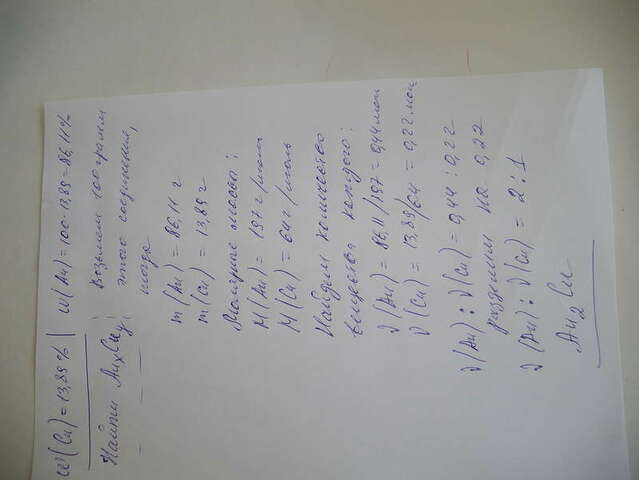 ω(Cu) = 13,89% | ω(Au) = 100-13,89 = 86,11%
Найти AuxCuy; Возьмем 100 грамм
этого соединения,
тогда
m(Au) = 86,11 г
m(Cu) = 13,89 г
Молярные массы:
M(Au) = 197 г/моль
M(Cu) = 64 г/моль
Найдем количество
вещества каждого:
ν(Au) = 86,11/197 = 0,44 моль
ν(Cu) = 13,89/64 = 0,22 моль
ν(Au) : ν(Cu) = 0,44 : 0,22
разделим на 0,22
ν(Au) : ν(Cu) = 2 : 1
Au2Cu